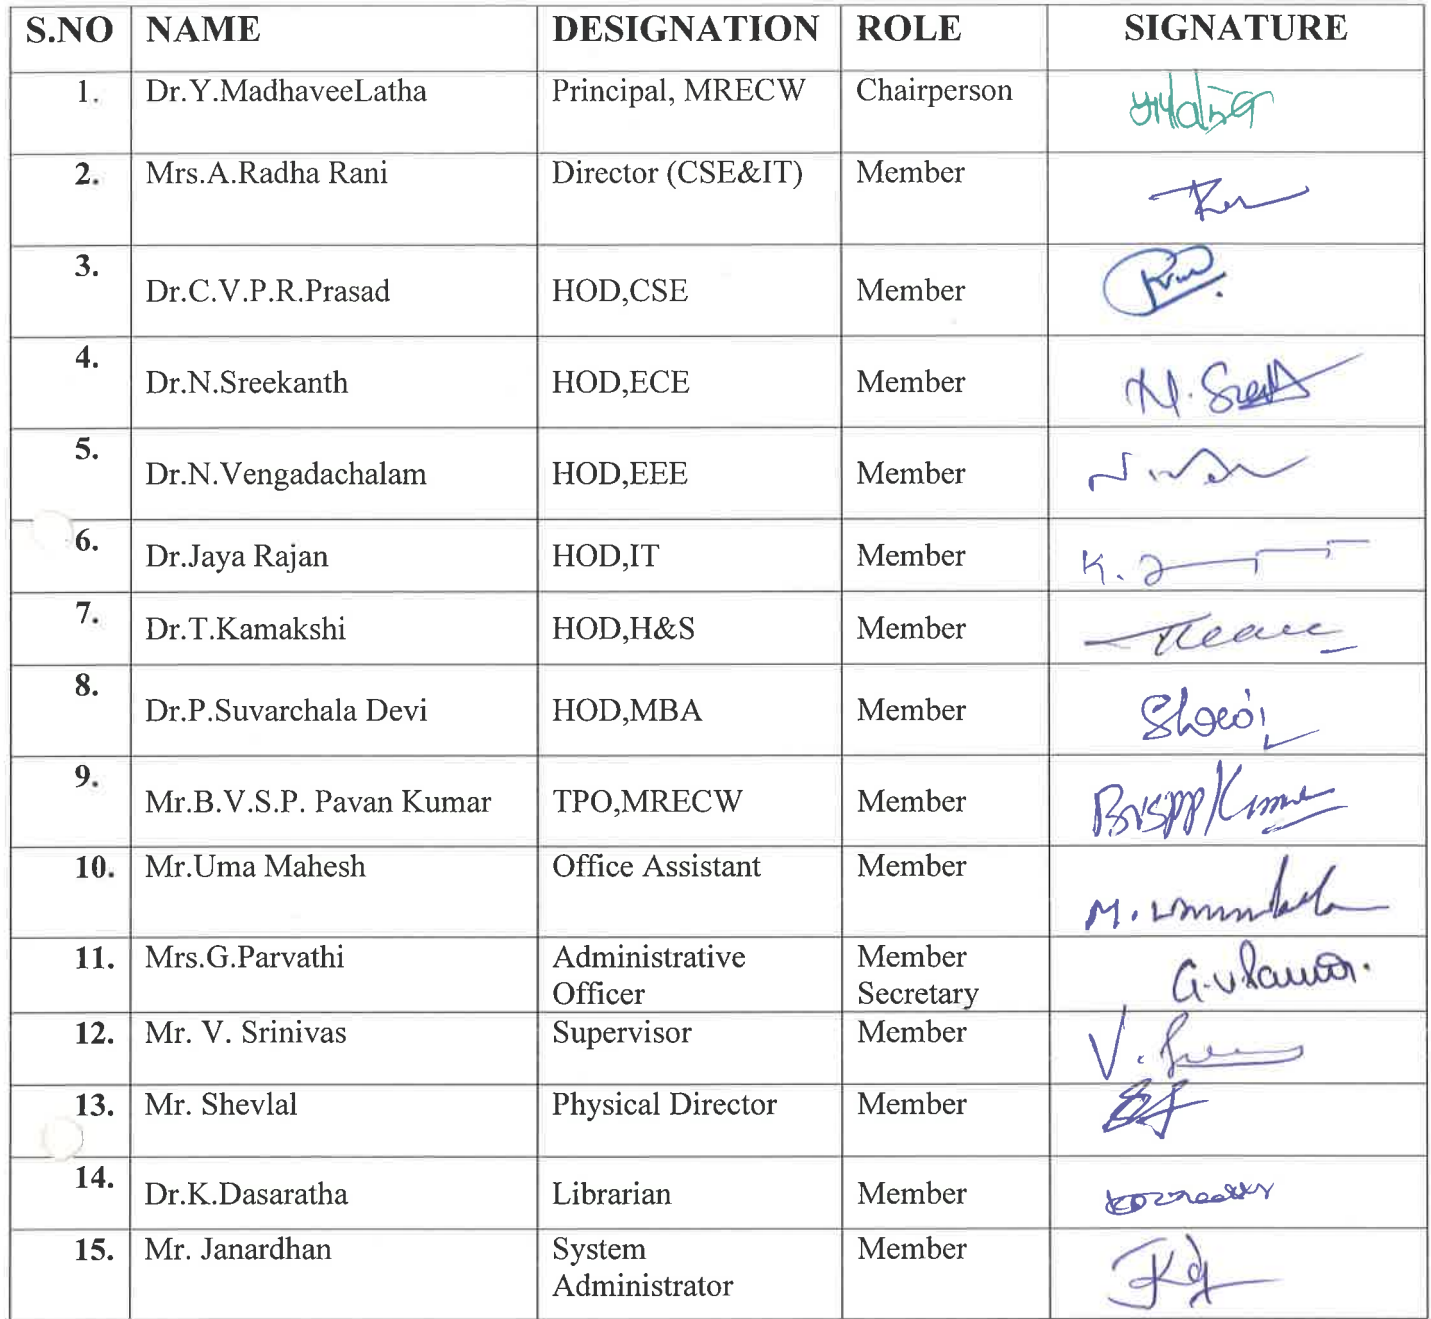 S.NO NAME DESIGNATION ROLE SIGNATURE
1. Dr.Y.MadhaveeLatha Principal, MRECW Chairperson
2. Mrs.A.Radha Rani Director (CSE&IT) Member
3. Dr.C.V.P.R.Prasad HOD,CSE Member
4. Dr.N.Sreekanth HOD,ECE Member
5. Dr.N.Vengadachalam HOD,EEE Member
6. Dr.Jaya Rajan HOD,IT Member
7. Dr.T.Kamakshi HOD,H&S Member
8. Dr.P.Suvarchala Devi HOD,MBA Member
9. Mr.B.V.S.P. Pavan Kumar TPO,MRECW Member
10. Mr.Uma Mahesh Office Assistant Member
11. Mrs.G.Parvathi Administrative Member
Officer Secretary
12. Mr. V. Srinivas Supervisor Member
13. Mr. Shevlal Physical Director Member
14. Dr.K.Dasaratha Librarian Member
15. Mr. Janardhan System Member
Administrator